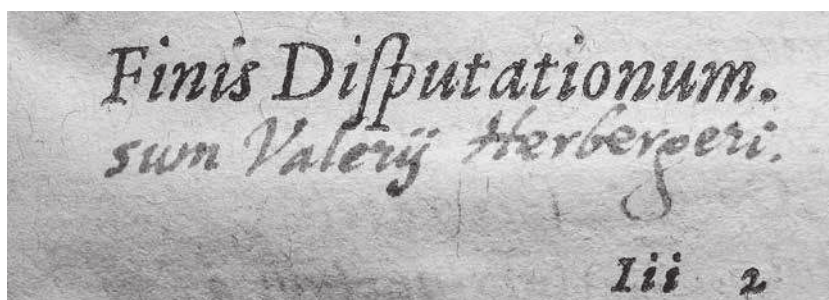 Finis Diſputationum.
sum Valerij Herbergeri.
Iii 2